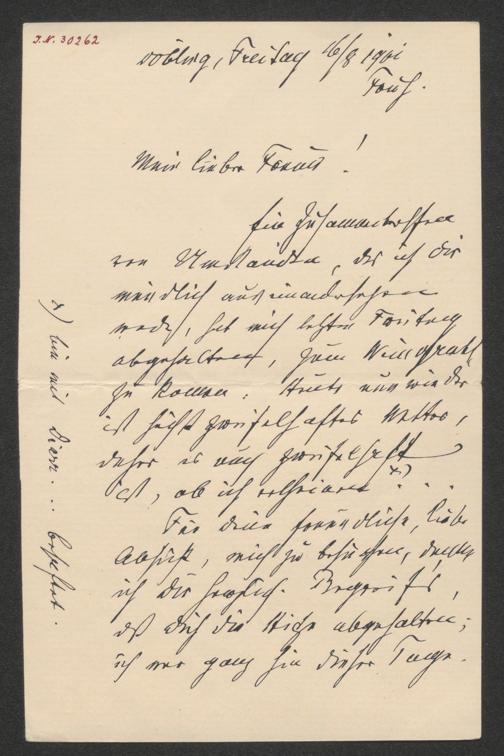 J.N. 30262
Döbling, Freitag 16/8 1901
Früh.
Mein lieber Freund!
Ein Zusammentreffen
von Umständen, das ich Dir
mündlich auseinandersetzen
werde, hat mich letzten Freitag
abgehalten, zum
zu kommen. Heute nun wieder
ist höchst zweifelhaftes Wetter,
daher es auch zweifelhaft
ist, ob ich erscheine x) ...
Für Deine freundliche, liebe
Absicht, mich zu besuchen, danke
ich Dir herzlich. Begreife,
daß Dich die Hitze abgehalten;
ich war ganz hin dieser Tage.
x) bin mit behaftet.